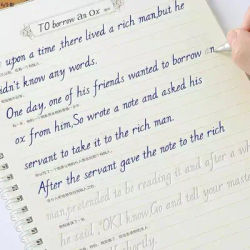 TO borrow an ox
upon a time, there lived a rich man, but he
didn't know any words.
One day, one of his friends wanted to borrow an
ox from him, So wrote a note and asked his
servant to take it to the rich man.
After the servant gave the note to the rich
man, pretended to be reading it and after a wh
he said, "OK I know, Go and tell your maste
shortly.